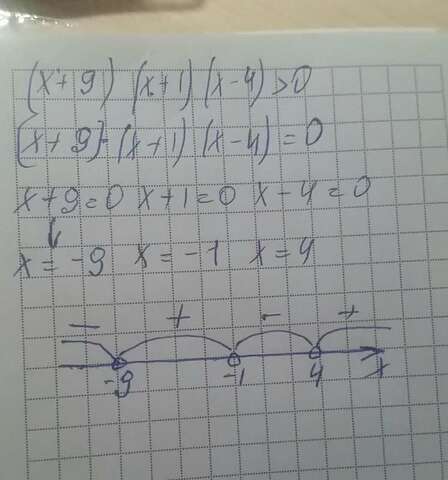 (x+9) (x+1) (x-4)>0
(x+9)·(x+1) (x-4)=0
x+9=0 x+1=0 x-4=0
x=-9 x=-1 x=4
- + - +
-9 -1 4 x